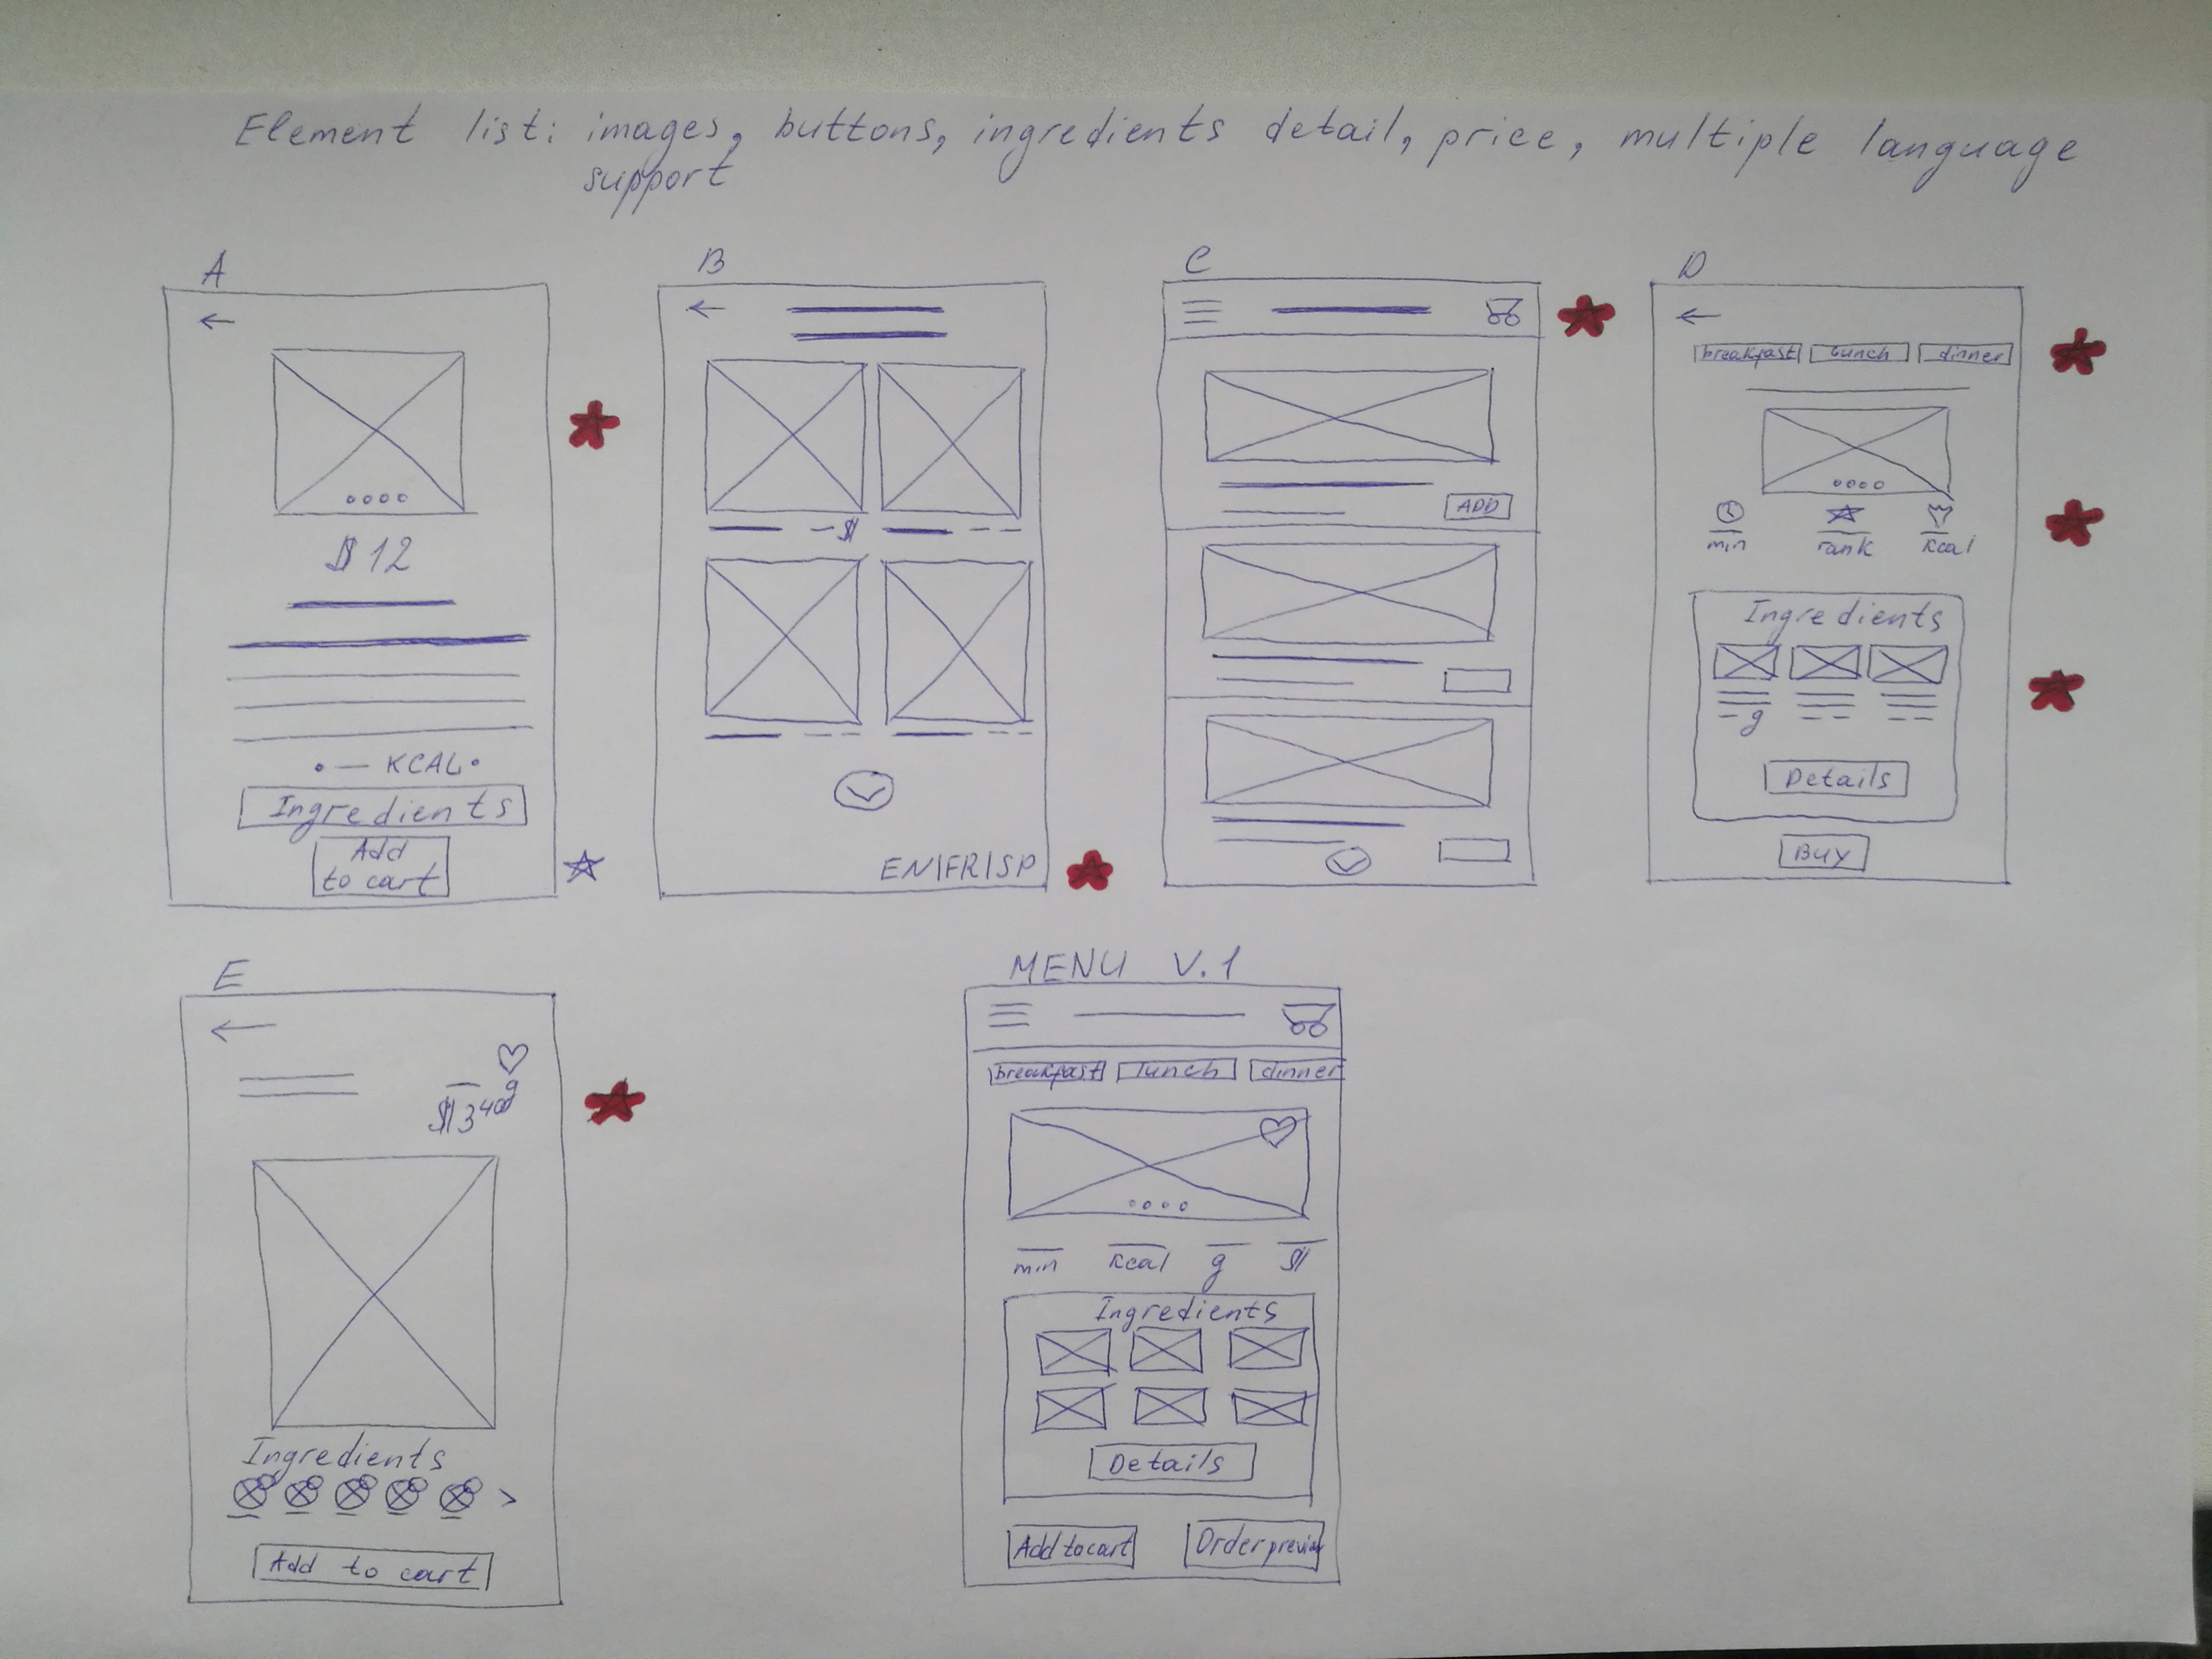 Element list: images, buttons, ingredients detail, price, multiple language
support
A
$12
KCAL
Ingredients
Add
to cart
B
$
EN|FR|SP
C
ADD
D
breakfast lunch dinner
min rank kcal
Ingredients
g
Details
Buy
E
g
Ingredients
Add to cart
MENU V.1
breakfast lunch dinner
min kcal g $
Ingredients
Details
Add to cart